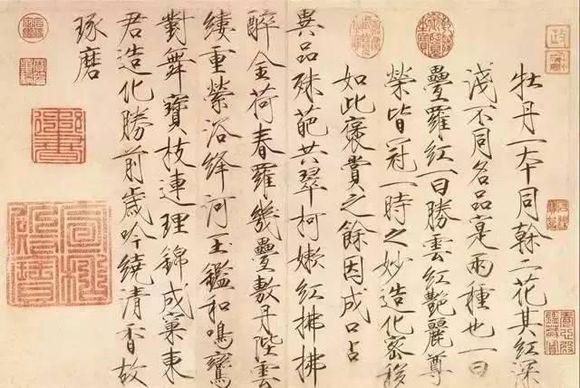 牡丹一本同幹二花其紅深
淺不同名品寔兩種也一曰
疊羅紅一曰勝雲紅艷麗尊
榮皆冠一時之妙造化密移
如此褒賞之餘因成口占
異品殊葩共翠柯嫩紅拂拂
醉金荷春羅幾疊敷丹陛雲
縷重縈浴絳河玉鑑和鳴鸞
對舞寶枝連理錦成窠東
君造化勝前歲吟繞清香故
琢磨
御書